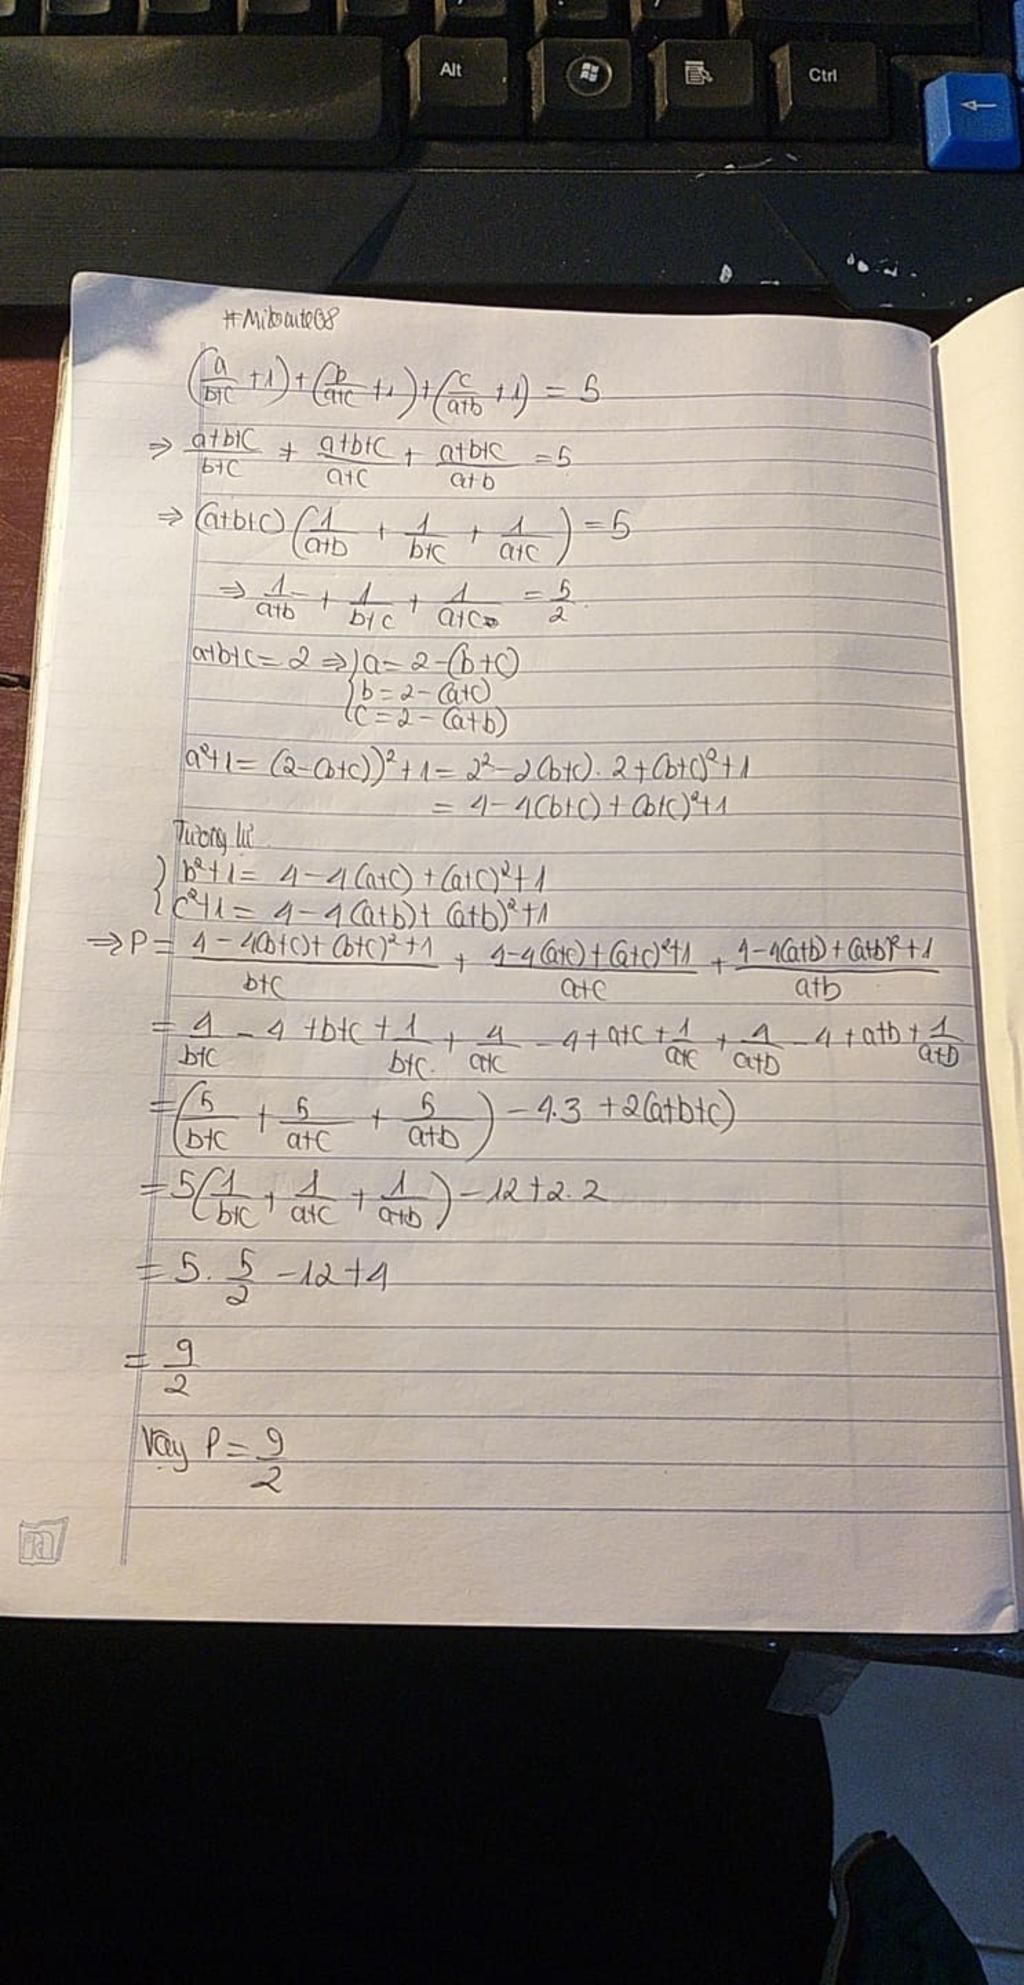 Alt
Ctrl
←
#Mitocute08
(a/(b+c) + 1) + (b/(a+c) + 1) + (c/(a+b) + 1) = 5
⇒ (a+b+c)/(b+c) + (a+b+c)/(a+c) + (a+b+c)/(a+b) = 5
⇒ (a+b+c)(1/(a+b) + 1/(b+c) + 1/(a+c)) = 5
⇒ 1/(a+b) + 1/(b+c) + 1/(a+c) = 5/2
a+b+c = 2 ⇒ { a = 2-(b+c)
b = 2-(a+c)
c = 2-(a+b)
a²+1 = (2-(b+c))²+1 = 2²-2(b+c).2+(b+c)²+1
= 4-4(b+c)+(b+c)²+1
Tương tự
{ b²+1 = 4-4(a+c)+(a+c)²+1
c²+1 = 4-4(a+b)+(a+b)²+1
⇒ P = (4-4(b+c)+(b+c)²+1)/(b+c) + (4-4(a+c)+(a+c)²+1)/(a+c) + (4-4(a+b)+(a+b)²+1)/(a+b)
= 4/(b+c) - 4 + b+c + 1/(b+c) + 4/(a+c) - 4 + a+c + 1/(a+c) + 4/(a+b) - 4 + a+b + 1/(a+b)
= (5/(b+c) + 5/(a+c) + 5/(a+b)) - 4.3 + 2(a+b+c)
= 5(1/(b+c) + 1/(a+c) + 1/(a+b)) - 12 + 2.2
= 5. 5/2 - 12 + 4
= 9/2
Vậy P = 9/2